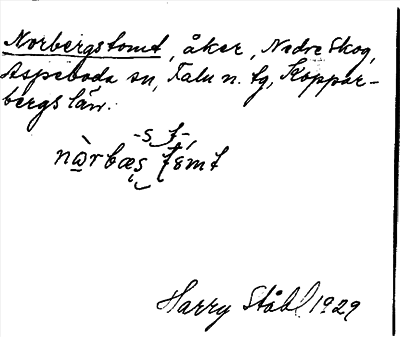 Norbergstomt, åker, Nedre Skog,
Aspeboda sn, Falu n. tg, Koppar-
bergs län.
-s t-
nàrbæs tómt
Harry Ståhl 1929